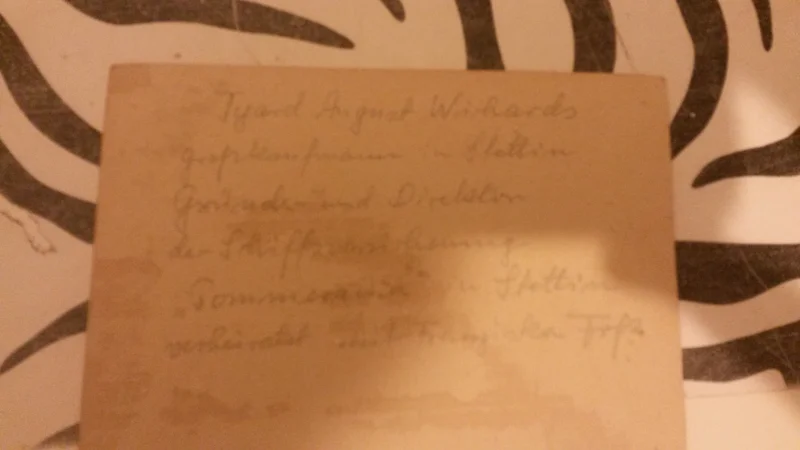 Tjard August Wichards
Großkaufmann in Stettin
Gründer und Direktor
der Schiffsversicherung
„Pommerania“ in Stettin
verheiratet mit